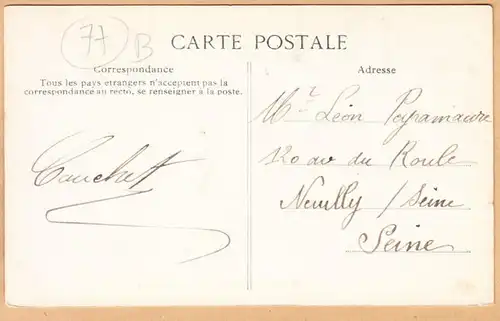 77 B
CARTE POSTALE
Correspondance
Tous les pays etrangers n'acceptent pas la
correspondance au recto, se renseigner à la poste.
Couchet
Adresse
Mr Léon Peyramaure
120 av du Roule
Neuilly / Seine
Seine